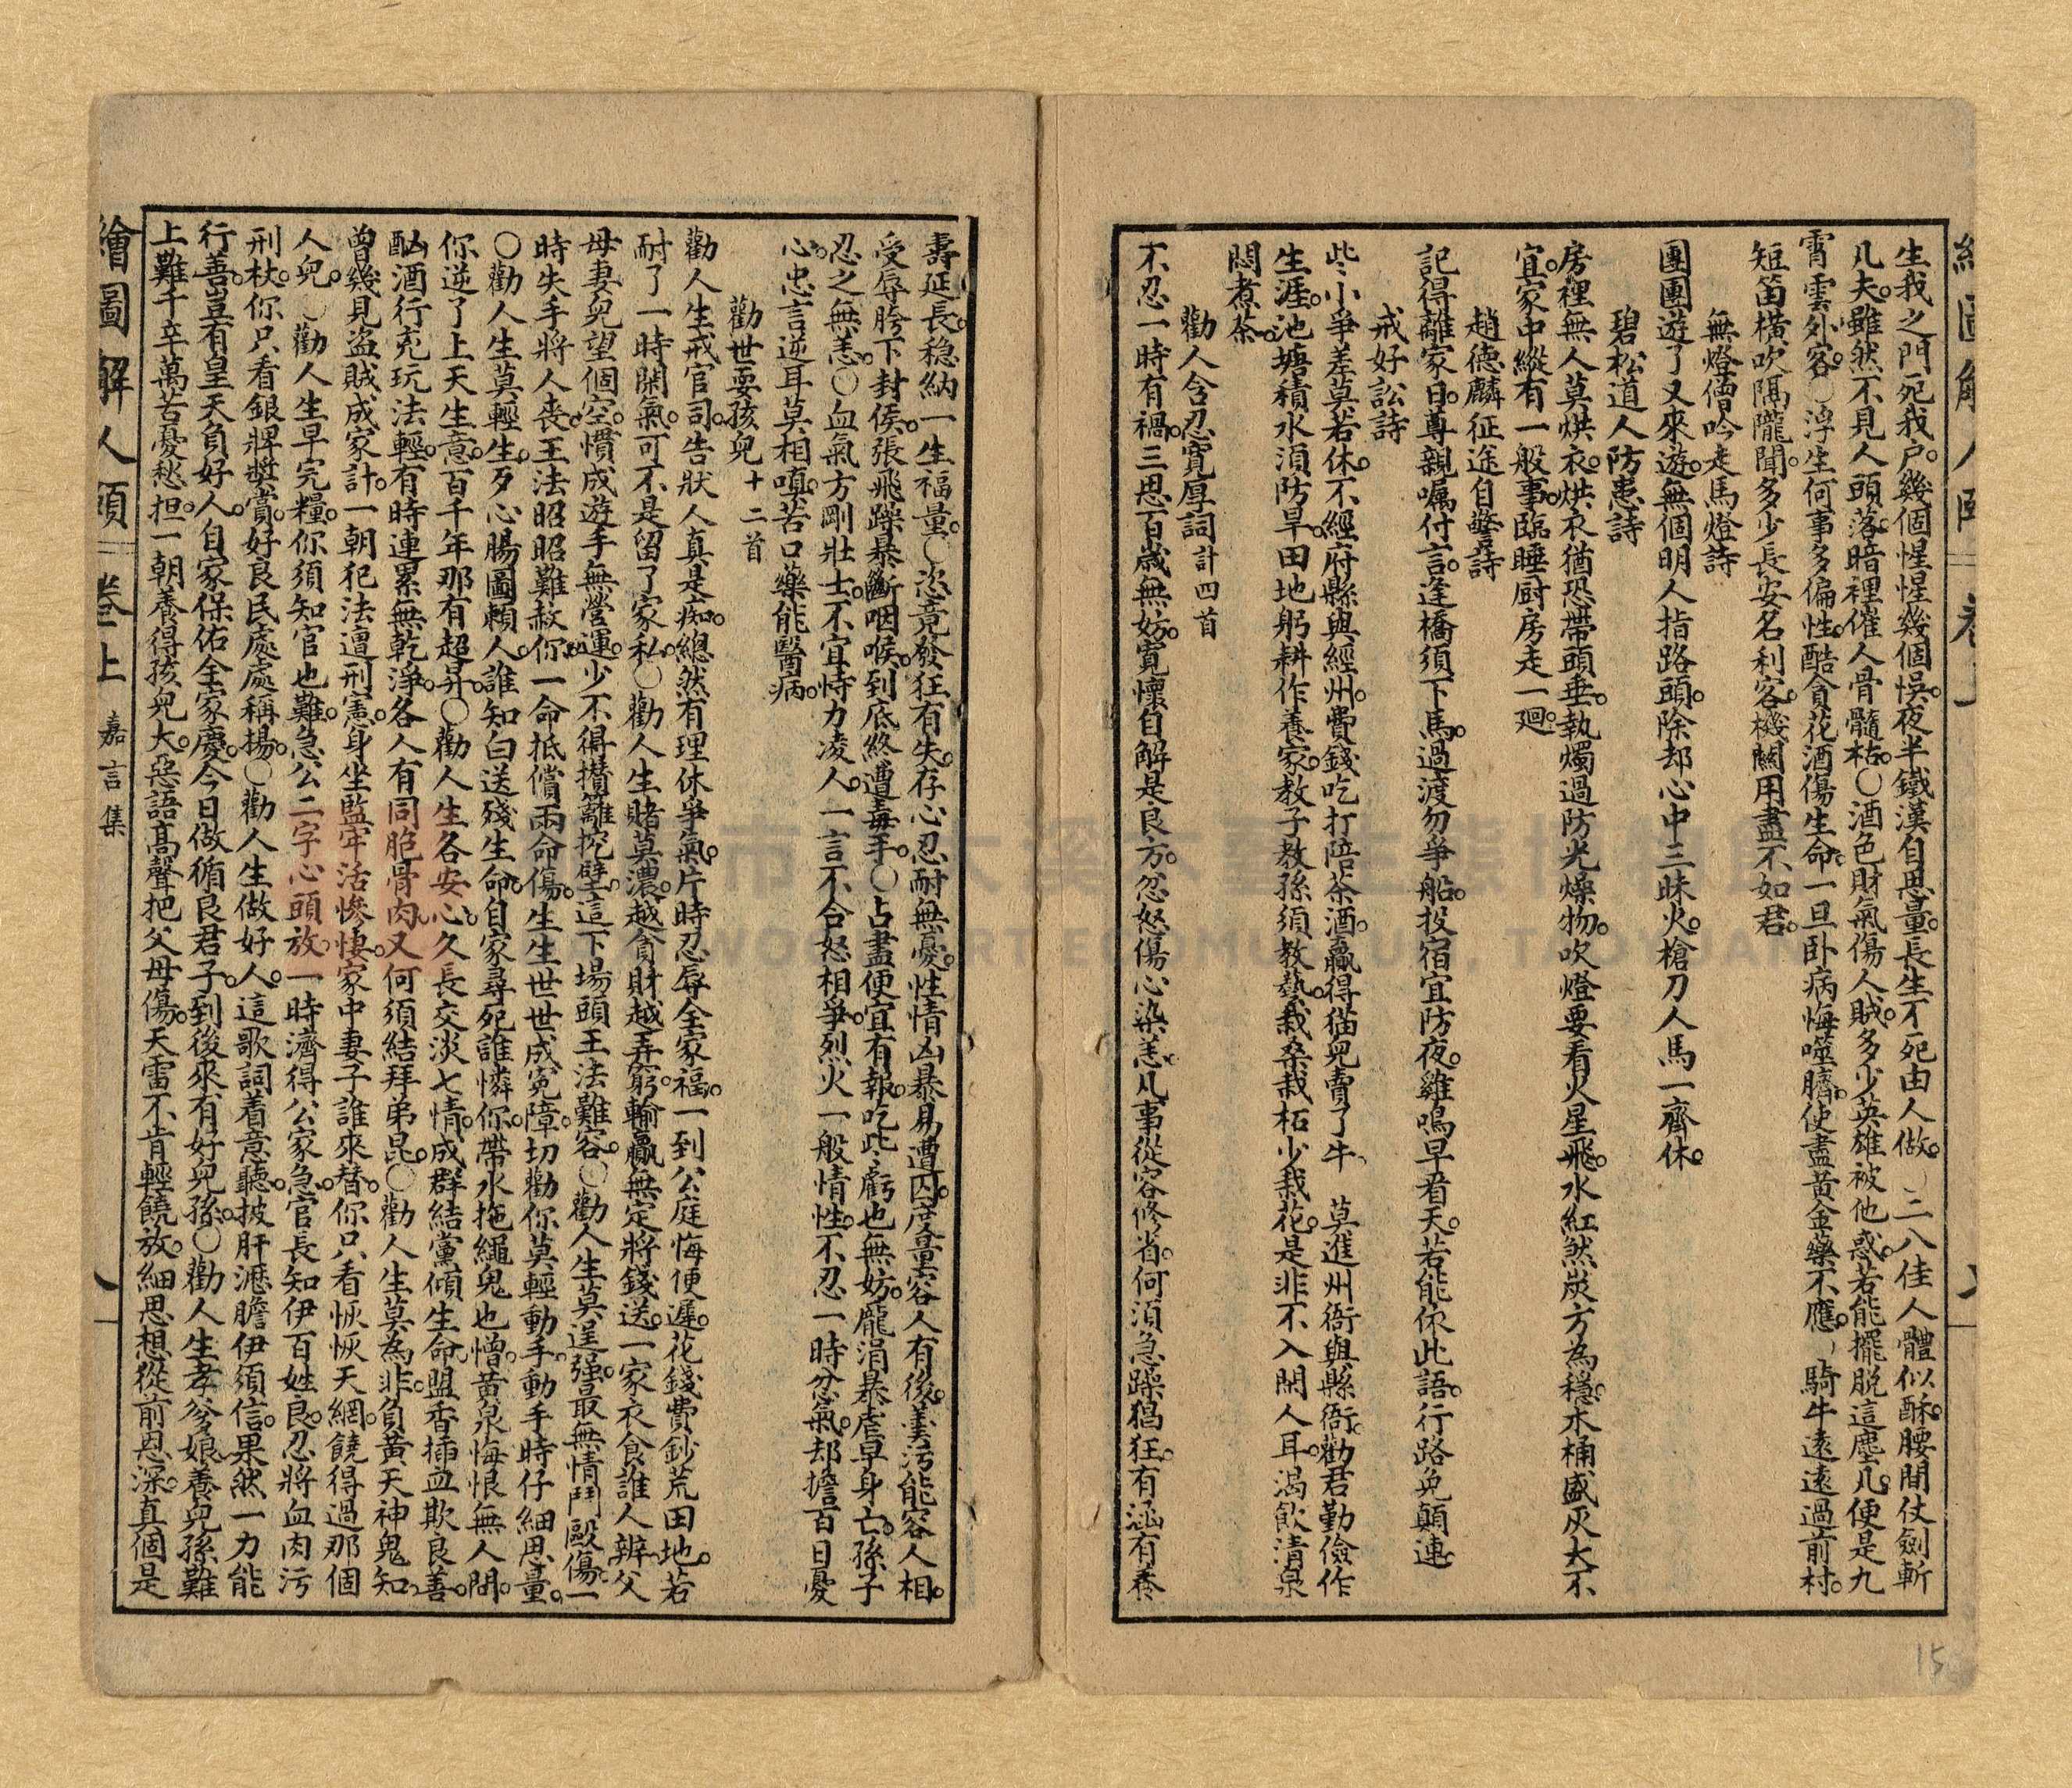 生我之門死我户。幾個惺惺幾個悞。夜半鐵漢自思量。長生不死由人做。〇二八佳人體似酥。腰間仗劍斬
凡夫。雖然不見人頭落。暗裡催人骨髓枯。〇酒色財氣傷人賊。多少英雄被他惑。若能擺脱這塵凡。便是九
霄雲外客。〇浮生何事多偏性。酷貪花酒傷生命。一旦卧病悔噬臍。使盡黄金藥不應。〇騎牛遠遠過前村。
短笛横吹隔隴聞。多少長安名利客。機關用盡不如君。
無燈僧吟走馬燈詩
團團遊了又來遊。無個明人指路頭。除却心中三昧火。槍刀人馬一齊休。
碧松道人防患詩
房裡無人莫烘衣。烘衣猶恐帶頭垂。執燭過防光燥物。吹燈要看火星飛。水紅煞炭方為穩。木桶盛灰大不
宜。家中縱有一般事。臨睡厨房走一廻。
趙德麟征途自警詩
記得離家日。尊親囑付言。逢橋須下馬。過渡勿爭船。投宿宜防夜。雞鳴早看天。若能依此語。行路免顛連。
戒好訟詩
些小爭差莫若休。不經府縣與經州。費錢吃打陪茶酒。贏得猫兒賣了牛。 莫進州衙與縣衙。勸君勤儉作
生涯。池塘積水須防旱。田地躬耕作養家。教子教孫須教藝。栽桑栽柘少栽花。是非不入閒人耳。渴飲清泉
悶煮茶。
勸人含忍寬厚詞計四首
不忍一時有禍。三思百歲無妨。寬懷自解是良方。忿怒傷心染恙。凡事從容修省。何須急躁猖狂。有涵有養
壽延長。穏納一生福量。〇恣竟發狂有失。存心忍耐無憂。性情凶暴易遭囚。度量容人有後。羹污能容人相。
受辱胯下封侯。張飛躁暴斷咽喉。到底終遭毒手。〇占盡便宜有報。吃些虧也無妨。龐涓暴虐早身亡。孫子
忍之無恙。〇血氣方剛壯士。不宜恃力凌人。一言不合怒相爭。烈火一般情性。不忍一時忿氣。却擔百日憂
心。忠言逆耳莫相嗔。苦口藥能醫病。
勸世耍孩兒十二首
勸人生戒官司。告狀人真是痴。總然有理休爭氣。片時忍辱全家福。一到公庭悔便遲。花錢費鈔荒田地。若
耐了一時閒氣。可不是留了家私。〇勸人生賭莫濃。越貪財越弄窮。輸贏無定將錢送。一家衣食誰人辦。父
母妻兒望個空。慣成遊手無營運。少不得攢籬挖壁。這下場頭王法難容。〇勸人生莫逞强。最無情鬥毆傷。一
時失手將人喪。王法昭昭難赦你。一命抵償兩命傷。生生世世成寃障。切勸你莫輕動手。動手時仔細思量。
〇勸人生莫輕生。歹心腸圖賴人。誰知白送殘生命。自家尋死誰憐你。帶水拖繩鬼也憎。黄泉悔恨無人問。
你逆了上天生意。百千年那有超昇。〇勸人生各安心。久長交淡七情。成群結黨傾生命。盟香插血欺良善。
酗酒行兇玩法輕。有時連累無乾淨。各人有同胞骨肉。又何須結拜弟昆。〇勸人生莫為非。負黄天神鬼知。
曾幾見盗賊成家計。一朝犯法遭刑憲。身坐監牢活慘悽。家中妻子誰來替。你只看恢恢天網。饒得過那個
人兒。〇勸人生早完糧。你須知官也難。急公二字心頭放。一時濟得公家急。官長知伊百姓良。忍將血肉污
刑杖。你只看銀牌獎賞。好良民處處稱揚。〇勸人生做好人。這歌詞着意聽。披肝瀝膽伊須信。果然一力能
行善。豈有皇天負好人。自家保佑全家慶。今日做循良君子。到後來有好兒孫。〇勸人生孝爹娘。養兒孫難
上難。千辛萬苦憂愁担。一朝養得孩兒大。惡語高聲把父母傷。天雷不肯輕饒放。細思想從前恩深。真個是
繪圖解人頤 卷上 嘉言集
15